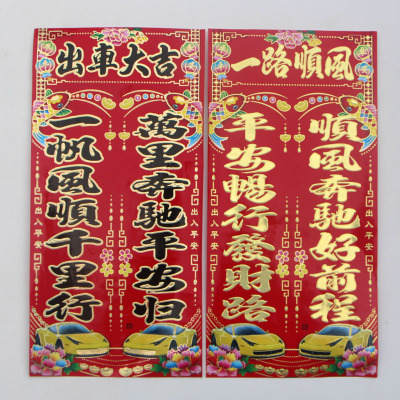 出車大吉
一帆風順千里行
萬里奔馳平安归
出入平安
出入平安
一路順風
平安暢行發財路
順風奔馳好前程
出入平安
出入平安